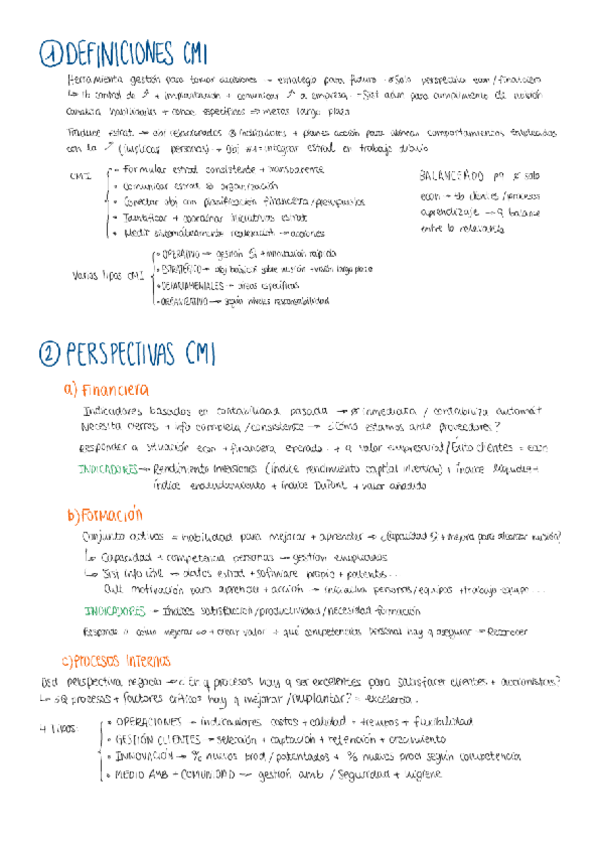 ① DEFINICIONES CMI
Herramienta gestión para tomar decisiones → enfoque para futuro → ≠ solo perspectiva econ/financiera
↳ control de + implantación + comunicar a empresa → Sist para cumplimiento de misión
Canaliza habilidades + conoc específicos ⇒ metas largo plazo
Traduce estrat. → obj relacionados indicadores + planes acción para alinear comportamientos
con la (implicar personas) + Obj #1 = integrar estrat en trabajo diario
CMI
• Formular estrat consistente + transparente
• Comunicar estrat la organización
• Conectar obj con planificación financiera/presupuestos
• Identificar + coordinar iniciativas estrat
• Medir sistemáticamente realización → acciones
BALANCEADO pq ≠ solo
econ → tb clientes/procesos
aprendizaje → balance
entre la relevancia
Varios tipos CMI
• OPERATIVO → gestión + rápida
• ESTRATÉGICO → obj básicos sobre misión + visión largo plazo
• DEPARTAMENTALES → áreas específicas
• ORGANIZATIVO → según niveles responsabilidad
② PERSPECTIVAS CMI
a) Financiera
Indicadores basados en contabilidad pasada → ≠ inmediata / contabiliza automát
Necesita cierres + info completa/consistente → ¿Cómo estamos ante proveedores?
Responder a situación econ + financiera esperada → valor empresarial/Éxito clientes = econ
INDICADORES → Rendimiento inversiones (índice rendimiento capital invertido) + índice liquidez +
índice endeudamiento + índice DuPont + valor añadido
b) Formación
Conjunto activos = habilidad para mejorar + aprender → ¿Capacidad + mejora para alcanzar misión?
↳ Capacidad + competencia personas → gestión empleados
↳ Sist info útil → datos estrat + software propio + patentes...
Cult motivación para aprender + acción → iniciativa personas/equipos + trabajo equipo...
INDICADORES → Índices satisfacción/productividad/necesidad formación
Responde a cómo mejorar + crear valor + qué competencias personal hay q asegurar → Reconocer
c) Procesos Internos
Dsd perspectiva negocio → ¿En q procesos hay q ser excelentes para satisfacer clientes + accionistas?
↳ procesos + factores críticos hay q mejorar/implantar? = excelencia..
4 tipos
• OPERACIONES → indicadores costos + calidad + tiempos + flexibilidad
• GESTIÓN CLIENTES → selección + captación + retención + crecimiento
• INNOVACIÓN → % nuevos prod/patentados + % nuevos prod según competencia
• MEDIO AMB + COMUNIDAD → gestión amb / Seguridad + higiene